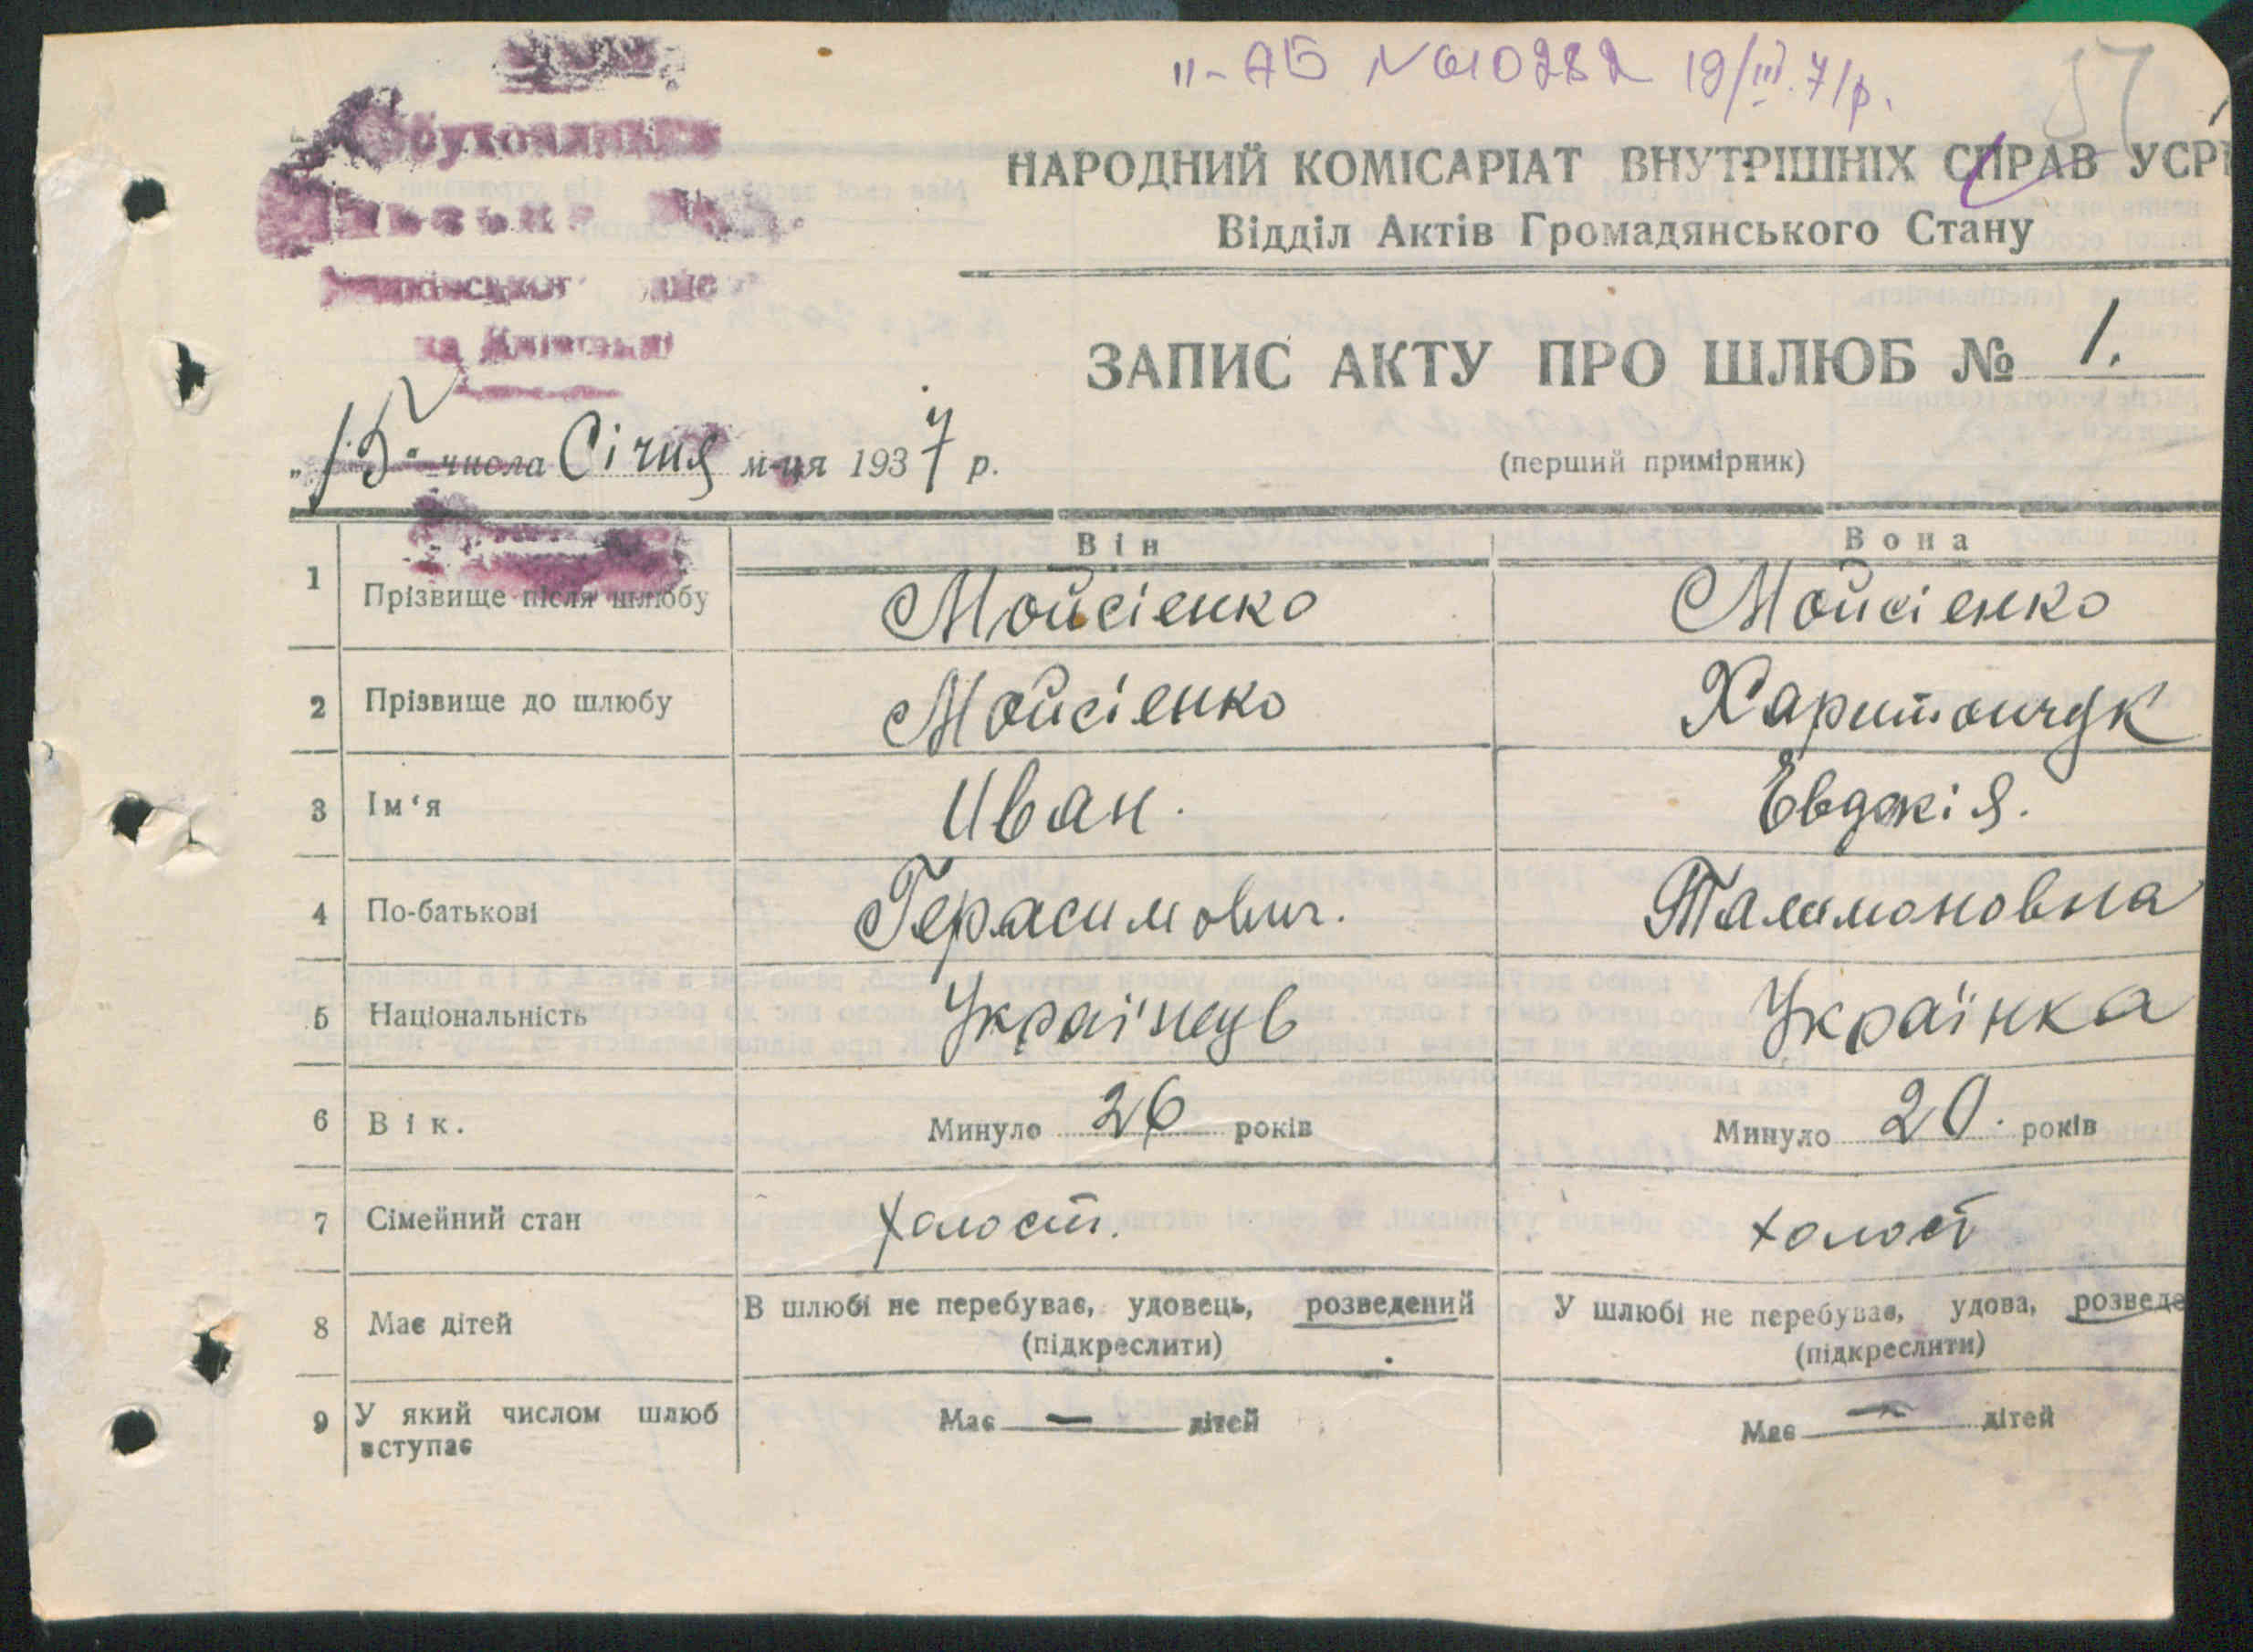 "-АБ № 010282 19/III.71р.
57
НАРОДНИЙ КОМІСАРІАТ ВНУТРІШНІХ СПРАВ УСРР
Відділ Актів Громадянського Стану
ЗАПИС АКТУ ПРО ШЛЮБ № 1.
(перший примірник)
"15" числа Січня м-ця 1937 р.
Він Вона
1 Прізвище після шлюбу Мойсієнко Мойсієнко
2 Прізвище до шлюбу Мойсієнко Харитончук
3 Ім'я Иван. Евдокія.
4 По-батькові Герасимович. Талимоновна
5 Національність Українець Українка
6 Вік. Минуло 26 років Минуло 20. років
7 Сімейний стан Холост. холост
8 Має дітей В шлюбі не перебуває, удовець, розведений У шлюбі не перебуває, удова, розведе
(підкреслити) (підкреслити)
9 У який числом шлюб вступає Має — дітей Має — дітей